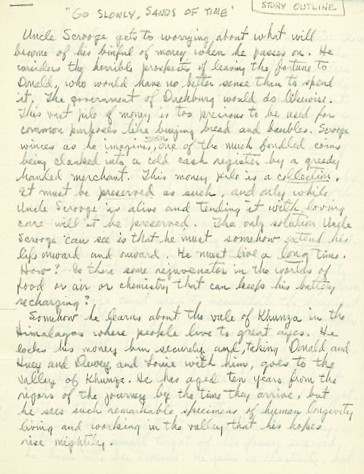 "GO SLOWLY, SANDS OF TIME"
STORY OUTLINE
Uncle Scrooge gets to worrying about what will
become of his binful of money when he passes on. He
considers the horrible prospects of leaving the fortune to
Donald, who would have no better sense than to spend
it. The government of Duckburg would do likewise.
This vast pile of money is too precious to be used for
common purposes like buying bread and baubles. Scrooge
winces as he imagines one of the much fondled coins
being clanked into a cold cash register by a greedy
handed merchant. This money pile is a collection.
It must be preserved as such, and only while
Uncle Scrooge is alive and tending it with loving
care will it be preserved. The only solution Uncle
Scrooge can see is that he must somehow extend his
life onward and onward. He must live a long time.
How? Is there some rejuvenator in the worlds of
food or air or chemistry that can keep his battery
recharging?
Somehow he learns about the vale of Khunza in the
Himalayas where people live to great ages. He
locks his money bin securely and, taking Donald and
Huey and Dewey and Louie with him, goes to the
valley of Khunza. He has aged ten years from the
rigors of the journey by the time they arrive, but
he sees such remarkable specimens of human longevity
living and working in the valley that his hopes
rise mightily.